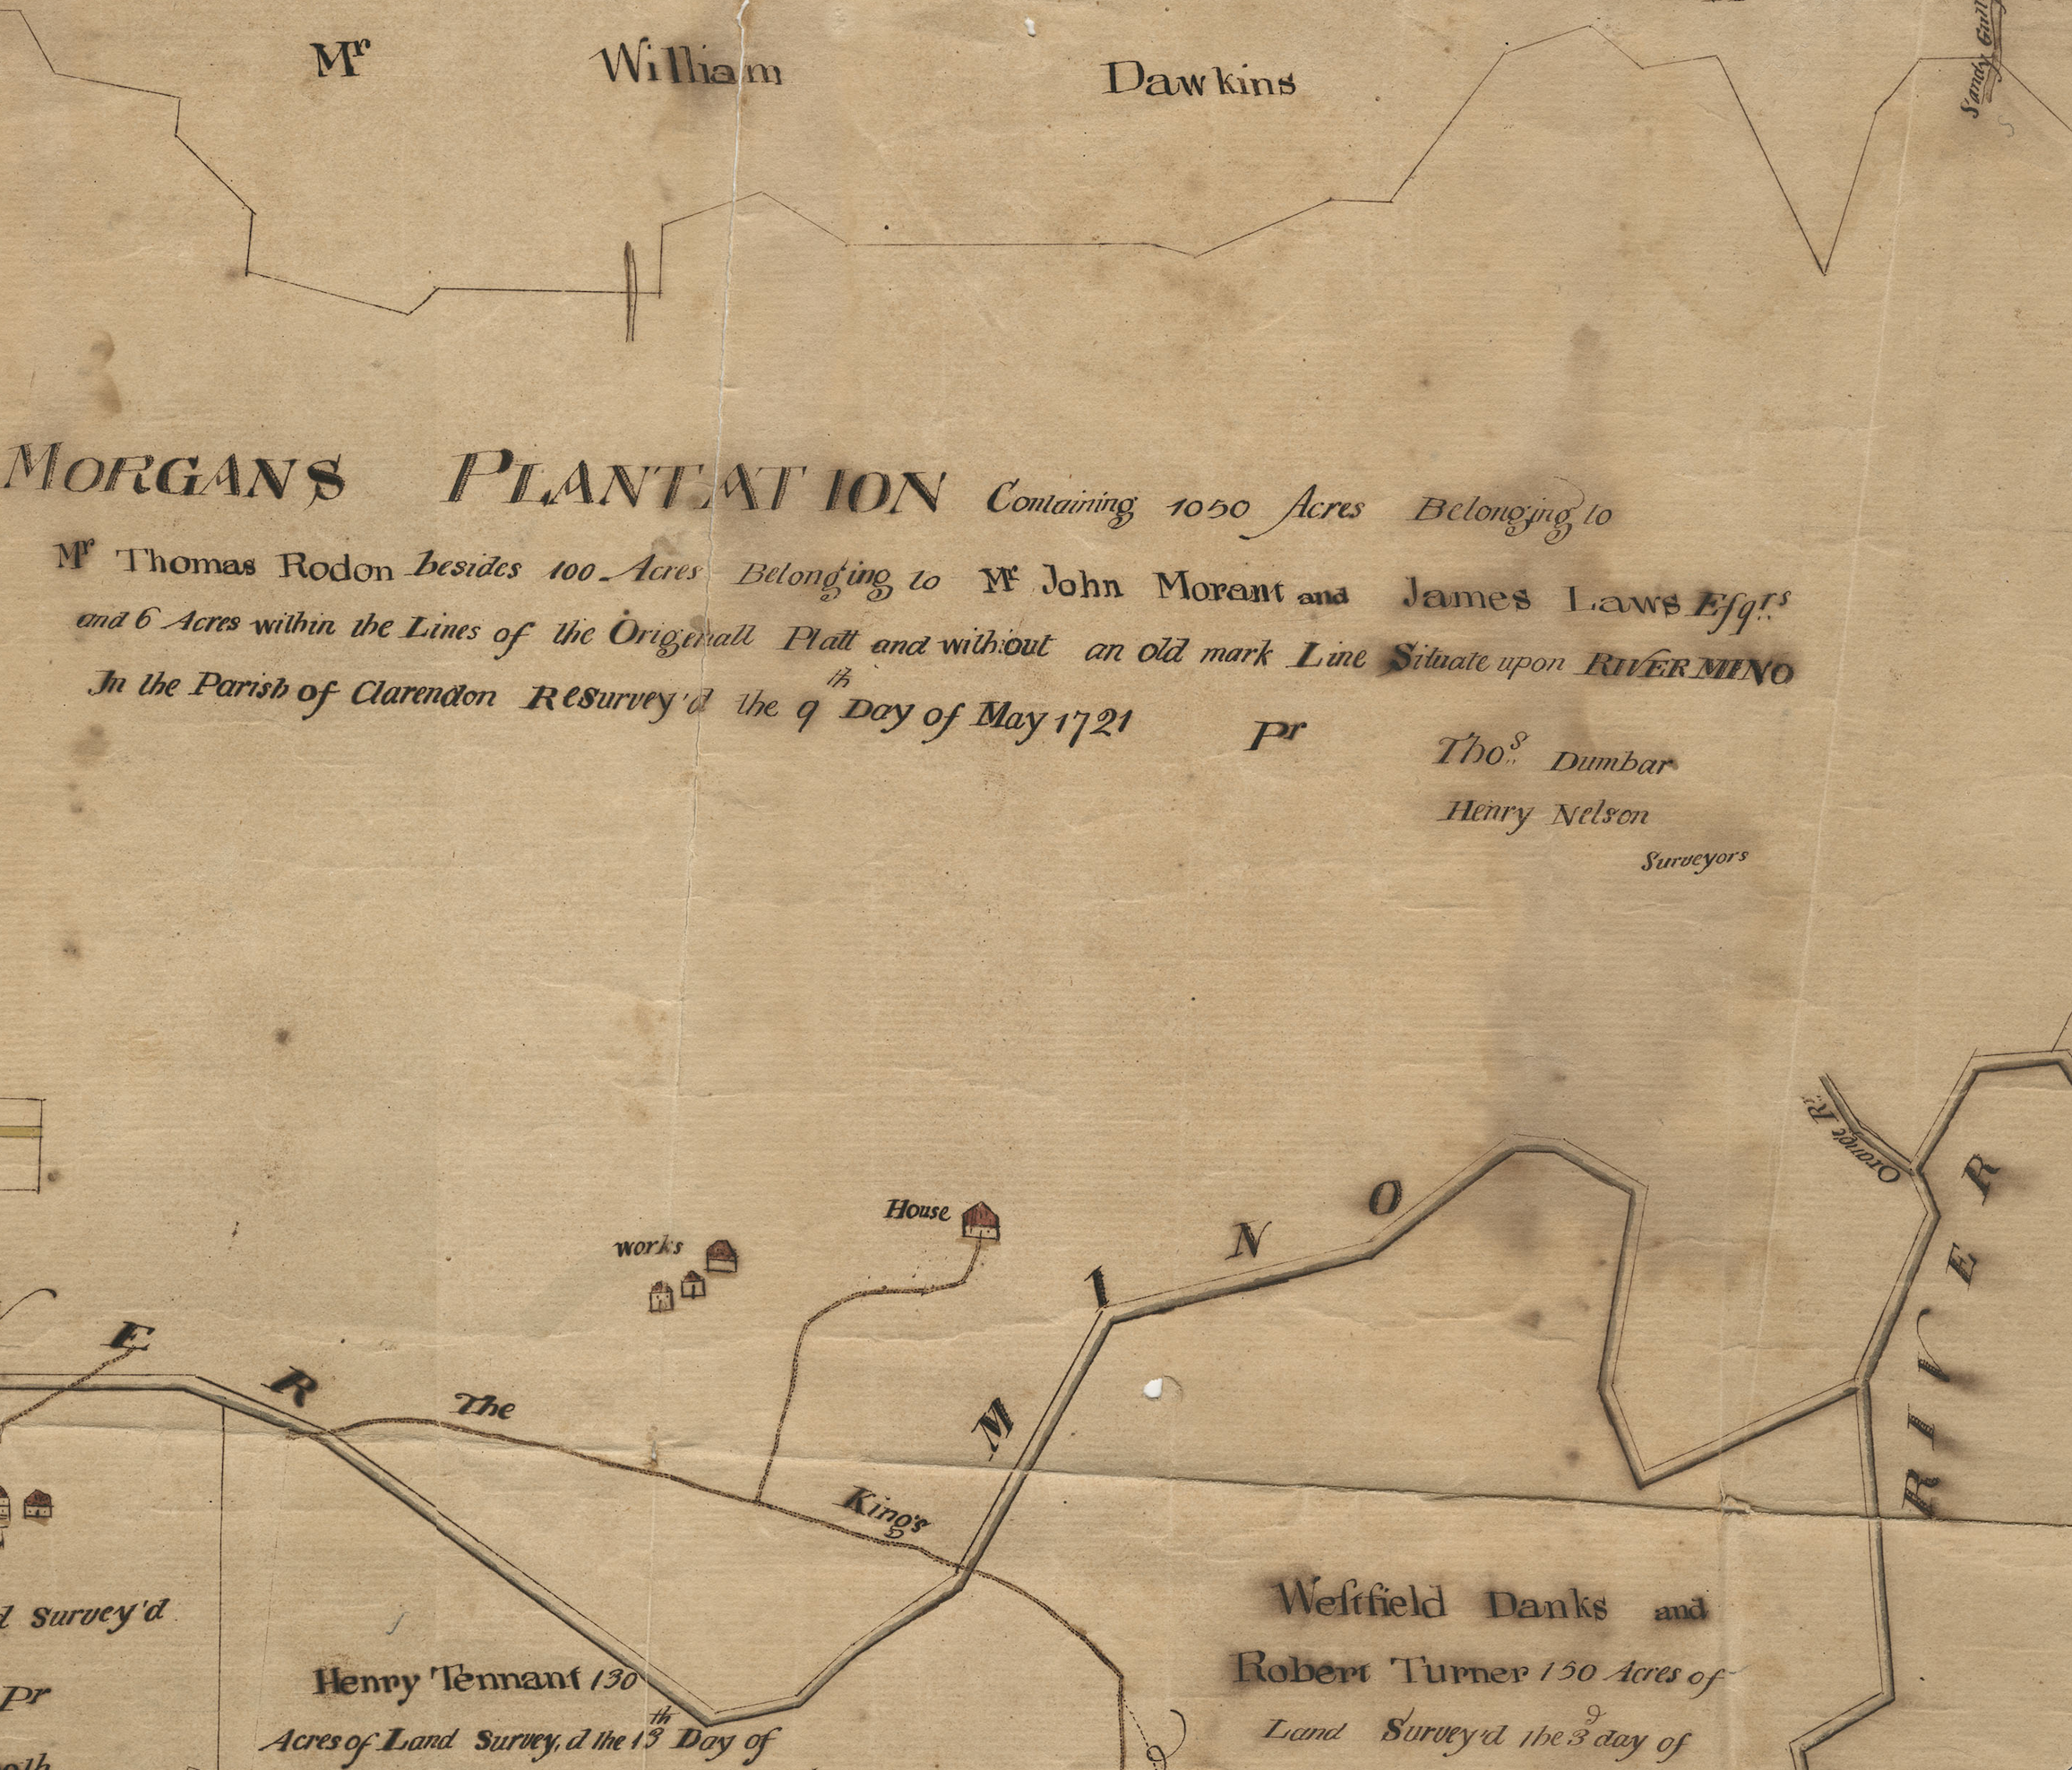 Mr William Dawkins
Sandy Gull
MORGANS PLANTATION Containing 1050 Acres Belonging to
Mr Thomas Rodon besides 100 Acres Belonging to Mr John Morant and James Laws Esqrs
and 6 Acres within the Lines of the Origenall Platt and without an old mark Line Situate upon RIVER MINO
In the Parish of Clarendon Resurvey'd the 9th Day of May 1721 Pr
Thos Dumbar
Henry Nelson
Surveyors
Orange R.
House
works
E R
M I N O
RIVER
The King's
d Survey'd
Pr
Henry Tennant 130
Acres of Land Survey,d the 13th Day of
Westfield Danks and
Robert Turner 150 Acres of
Land Survey'd the 3d day of